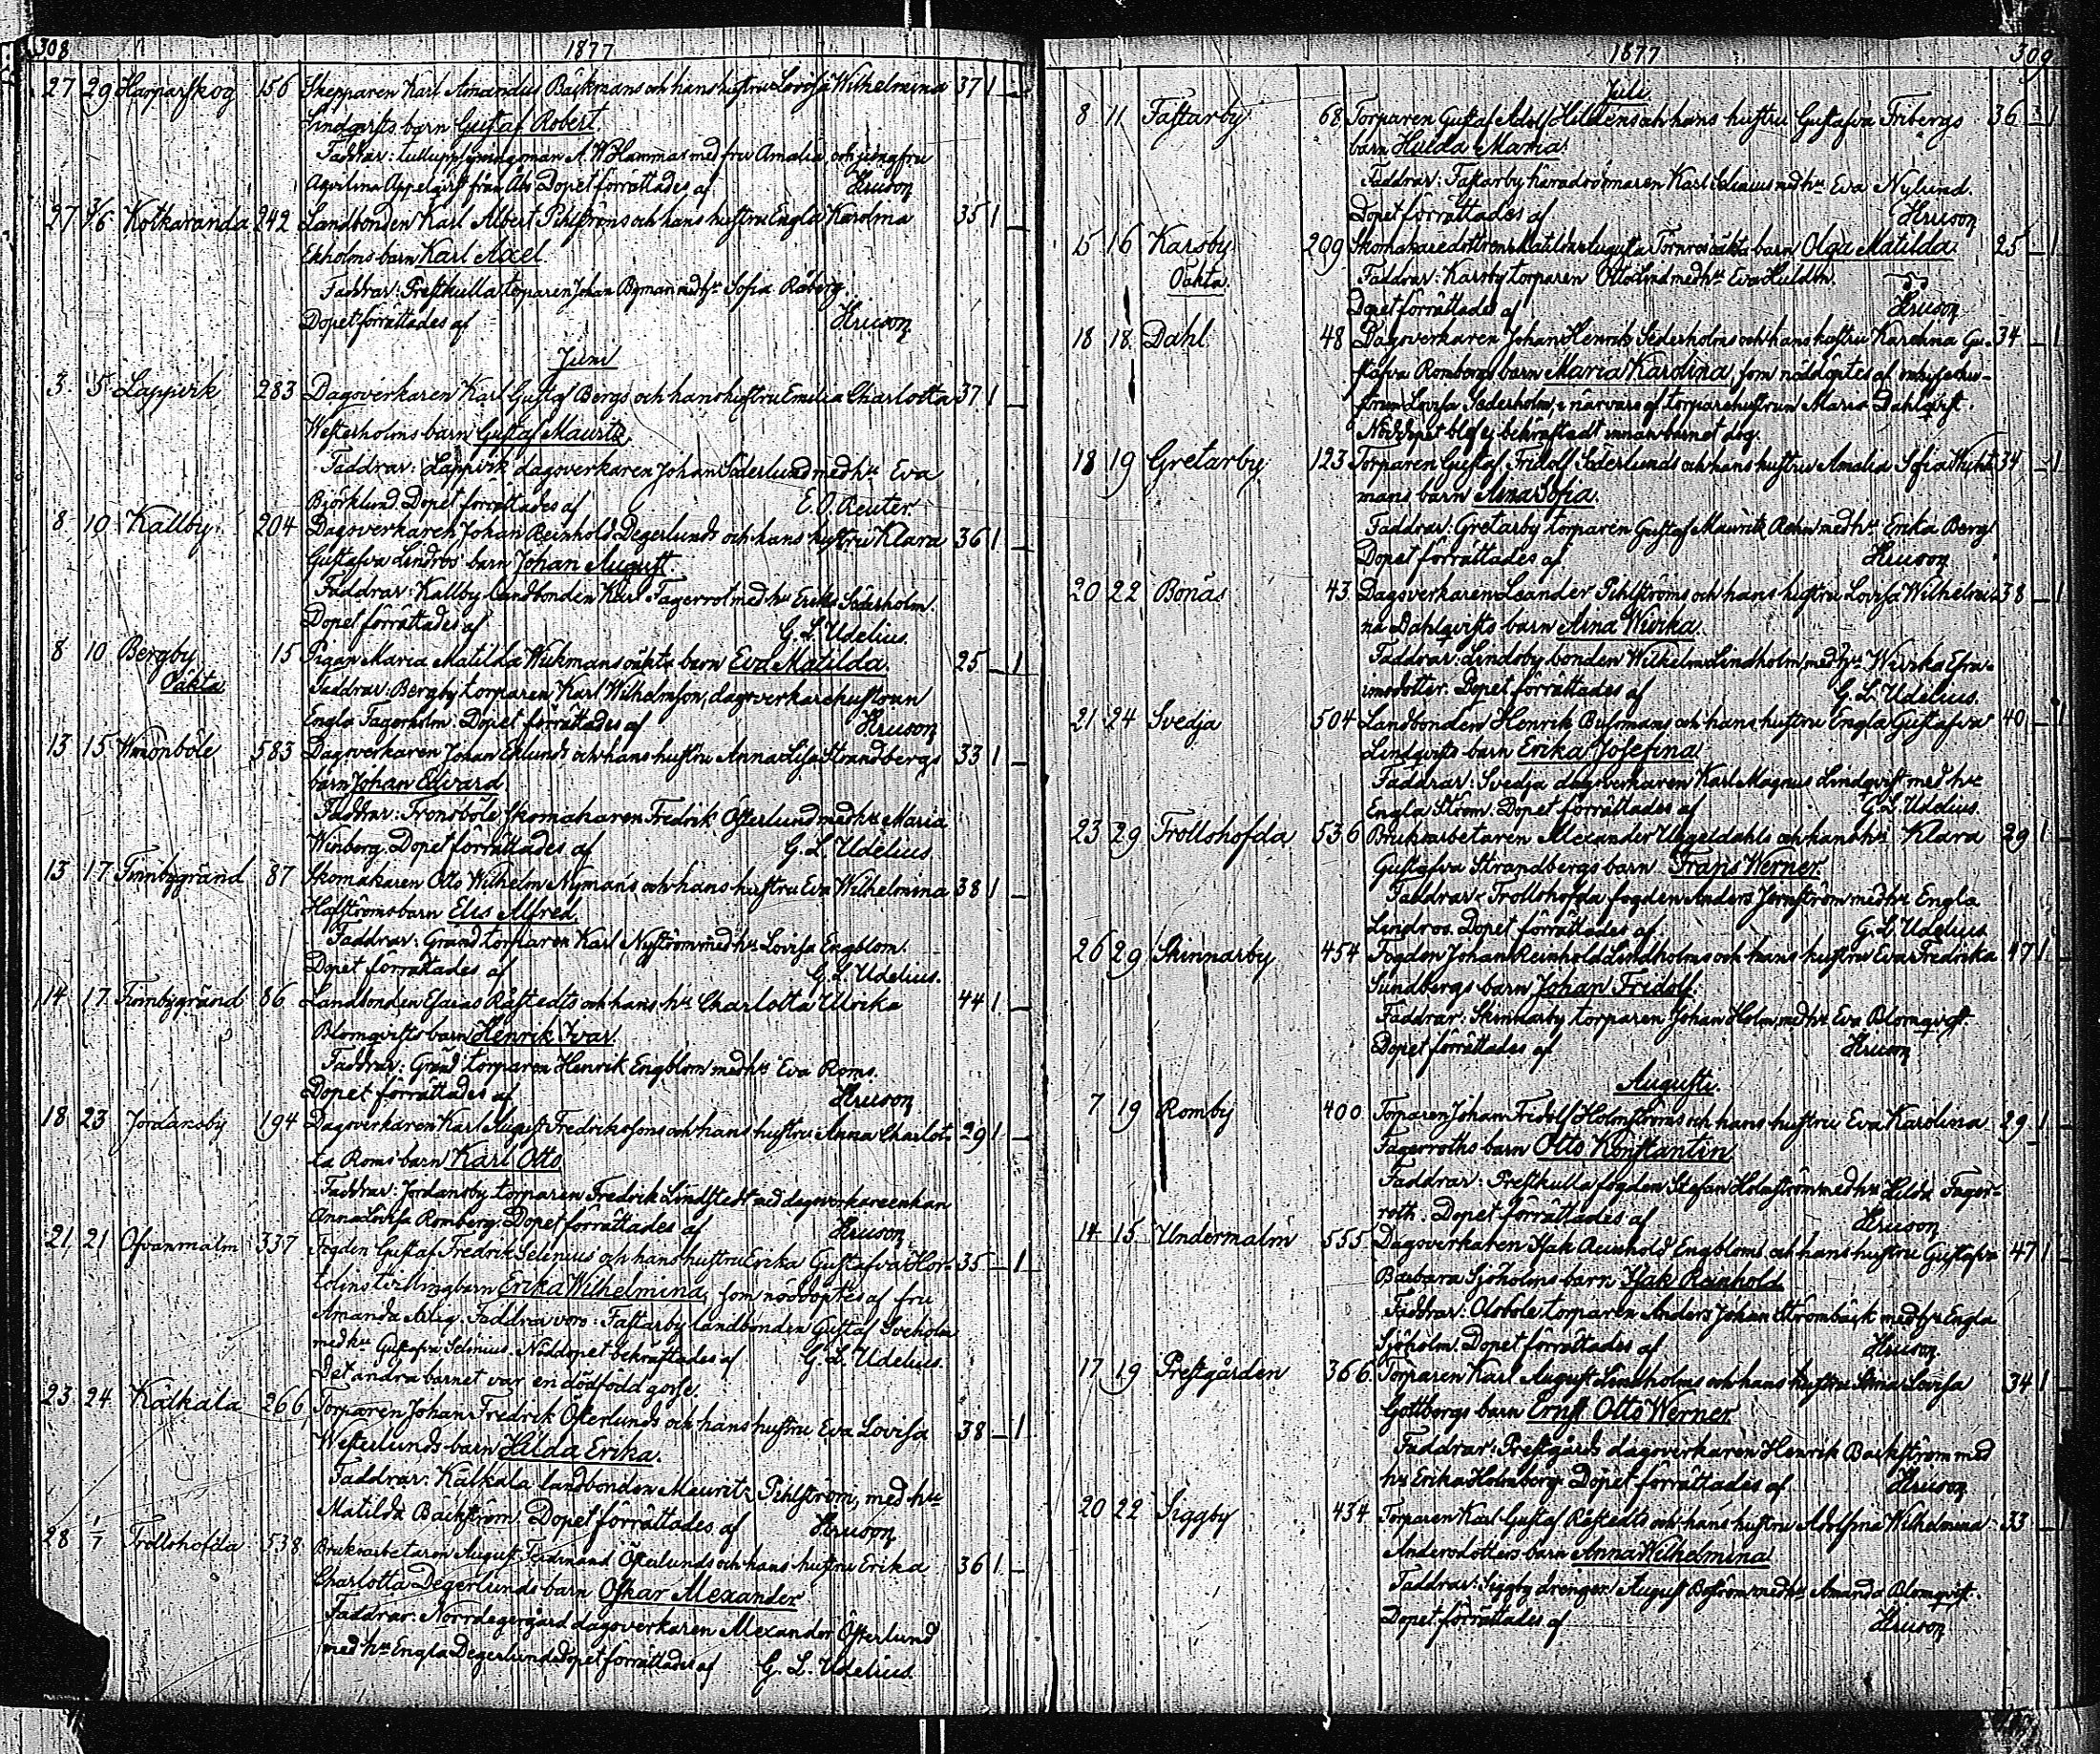 308
1877
27 29 Harparskog 156 Skepparen Karl Amandus Bäckmans och hans hustru Lovisa Wilhelmina 37 1 –
Lindqvists barn Gustaf Robert.
Faddrar: tulluppsyningsman A. W. Hammar med fru Amalia och jungfru
Aqvilina Appelqvist från Åbo Dopet förrättades af Hruson
27 3/6 Kotkaranda 242 Landbonden Karl Albert Pihlströms och hans hustru Engla Karolina 35 1 –
Ekholms barn Karl Axel.
Faddrar: Prestkulla torparen Johan Byman med hu Sofia Råberg.
Dopet förrättades af Hruson
Juni
3 5 Lappvik 283 Dagsverkaren Karl Gustaf Bergs och hans hustru Emilia Charlotta 37 1 –
Westerholms barn Gustaf Mauritz.
Faddrar: Lappvik dagsverkaren Johan Söderlund med hu Eva
Björklund. Dopet förrättades af E. O. Reuter
8 10 Källby 204 Dagsverkaren Johan Reinhold Degerlunds och hans hustru Klara 36 1 –
Gustafva Lindros barn Johan August.
Faddrar: Källby landbonden Karl Fagerrot med hu Erika Söderholm.
Dopet förrättades af G. L. Udelius.
8 10 Bergby 15 Pigan Maria Matilda Wikmans oäkta barn Eva Matilda. 25 – 1
Oäkta
Faddrar: Bergby torparen Karl Wilhelmson, dagsverkarehustrun
Engla Fagerholm. Dopet förrättades af Hruson
13 15 583 Dagsverkaren Johan Eklunds och hans hustru Anna Lisa Strandbergs 33 1 –
barn Johan Edvard.
Faddrar: Tronsböle skomakaren Fredrik Österlund med hu Maria
Winberg. Dopet förrättades af G. L. Udelius
13 17 Finnbygränd 87 Skomakaren Otto Wilhelm Nymans och hans hustru Eva Wilhelmina 38 1 –
Hafströms barn Elis Alfred.
Faddrar: Gränd torparen Karl Nyström med hu Lovisa Engblom.
Dopet förrättades af G. L. Udelius.
14 17 Finnbygränd 86 Landbonden Esaias Råstedts och hans hu Charlotta Ulrika 44 1 –
Blomqvists barn Henrik Ivar.
Faddrar: Gränd torparen Henrik Engblom med hu Eva Roms.
Dopet förrättades af Hruson
18 23 Jordansby 194 Dagsverkaren Karl August Fredrikssons och hans hustru Anna Charlot- 29 1 –
ta Roms barn Karl Otto
Faddrar: Jordansby torparen Fredrik Lindstedt med dagsverkareenkan
Anna Lovisa Romberg. Dopet förrättades af Hruson
21 21 Ofvanmalm 337 Fogden Gustaf Fredrik Selenius och hans hustru Erika Gustafva Hor- 35 – 1
telins tvillingbarn Erika Wilhelmina, som nöddöptes af fru
Amanda Arlig. Faddrar voro: Fastarby landbonden Gustaf Sveholm
med hu Gustafva Selenius. Nöddopet bekräftades af G. L. Udelius.
Det andra barnet var en dödfödd gosse.
23 24 Kälkälä 266 Torparen Johan Fredrik Österlunds och hans hustru Eva Lovisa 38 – 1
Westerlunds barn Hilda Erika.
Faddrar: Kälkälä landbonden Mauritz Pihlström, med hu
Matilda Bäckström. Dopet förrättades af Hruson
28 1/7 Trollshofda 538 Bruksarbetaren August Ferdinand Österlunds och hans hustru Erika 36 1 –
Charlotta Degerlunds barn Oskar Alexander
Faddrar: Norrdegergård dagsverkaren Alexander Österlund
med hu Engla Degerlund. Dopet förrättades af G. L. Udelius
1877
309
Juli
8 11 Fastarby 68 Torparen Gustaf Adolf Hildens och hans hustru Gustafva Fribergs 36 – 1
barn Hulda Maria.
Faddrar: Fastarby häradsdomaren Karl Selenius med hu Eva Nylund.
Dopet förrättades af Hruson
15 16 Karsby 209 Skomakaredottren Matilda Augusta Törnros oäkta barn Olga Matilda. 25 – 1
Oäkta.
Faddrar: Karsby torparen Otto Lind med hu Eva Huldin.
Dopet förrättades af Hruson
18 18 Dahl 48 Dagsverkaren Johan Henrik Söderholms och hans hustru Karolina Gu- 34 – 1
stafva Rombergs barn Maria Karolina, som nöddöptes af
Lovisa Söderholm, i närvaro af torparehustrun Maria Dahlqvist.
Nöddopet blef ej bekräftadt innan barnet dog.
18 19 Gretarby 123 Torparen Gustaf Fridolf Söderlunds och hans hustru Amalia Sofia Wikt- 34 – 1
mans barn Anna Sofia.
Faddrar: Gretarby torparen Gustaf Mauritz Rehn med hu Erika Berg.
Dopet förrättades af Hruson
20 22 Bonäs 43 Dagsverkaren Leander Pihlströms och hans hustru Lovisa Wilhelmi- 38 – 1
na Dahlqvists barn Anna Wivika.
Faddrar: Lindsby bonden Wilhelm Lindholm, med hu Wivika Efra-
imsdotter. Dopet förrättades af G. L. Udelius.
21 24 Svedja 504 Landbonden Henrik Busmans och hans hustru Engla Gustafva 40 – 1
Lindqvists barn Erika Josefina.
Faddrar: Svedja dagsverkaren Karl Magnus Lindqvist med hu
Engla Ström. Dopet förrättades af G. L. Udelius.
23 29 Trollshofda 536 Bruksarbetaren Alexander Uggeldahls och hans hu Klara 29 1 –
Gustafva Strandbergs barn Frans Werner.
Faddrar: Trollshofda fogden Anders Jernström med hu Engla
Lindros. Dopet förrättades af G. L. Udelius
26 29 Skinnarby 454 Fogden Johan Reinhold Lindholms och hans hustru Eva Fredrika 47 1
Sundbergs barn Johan Fridolf.
Faddrar: Skinnarby torparen Johan Holm med hu Eva Blomqvist.
Dopet förrättades af Hruson
Augusti.
7 19 Romby 400 Torparen Johan Fridolf Holmströms och hans hustru Eva Karolina 29 1 –
Fagerroths barn Otto Konstantin.
Faddrar: Prestkulla fogden Stefan Holmström med hu Hilda Fager-
roth. Dopet förrättades af Hruson
14 15 Undermalm 555 Dagsverkaren Isak Reinhold Engbloms och hans hustru Gustafva 47 1
Barbara Sjöholms barn Isak Reinhold.
Faddrar: Olsböle torparen Anders Johan Strömbäck med hu Engla
Sjöholm. Dopet förrättades af Hruson
17 19 Prestgården 366 Torparen Karl August Lindholms och hans hustru Anna Lovisa 34 1
Gottbergs barn Ernst Otto Werner.
Faddrar: Prestgårds dagsverkaren Henrik Backström med
hu Erika Holmberg. Dopet förrättades af Hruson
20 22 Siggby 434 Torparen Karl Gustaf Råstedts och hans hustru Adolfina Wilhelmina 33 – 1
Andersdotters barn Anna Wilhelmina.
Faddrar: Siggby drengen August Boström med hu Amanda Blomqvist.
Dopet förrättades af Hruson